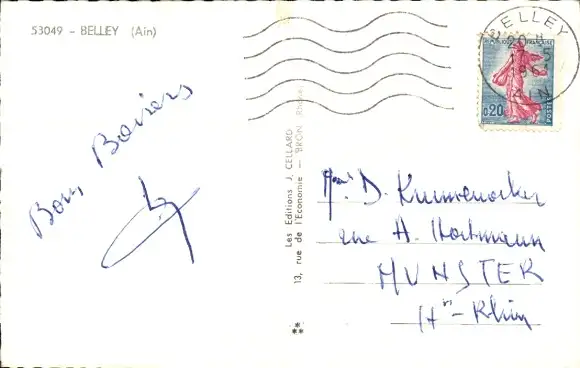 53049 - BELLEY (Ain)
Bons Baisers
Les Editions J. CELLARD
13, rue de l'Economie — BRON (Rhône)
BELLEY
AIN
FRANÇAISE
0,20
POSTES
D.
rue A. Hartmann
MUNSTER
Ht - Rhin